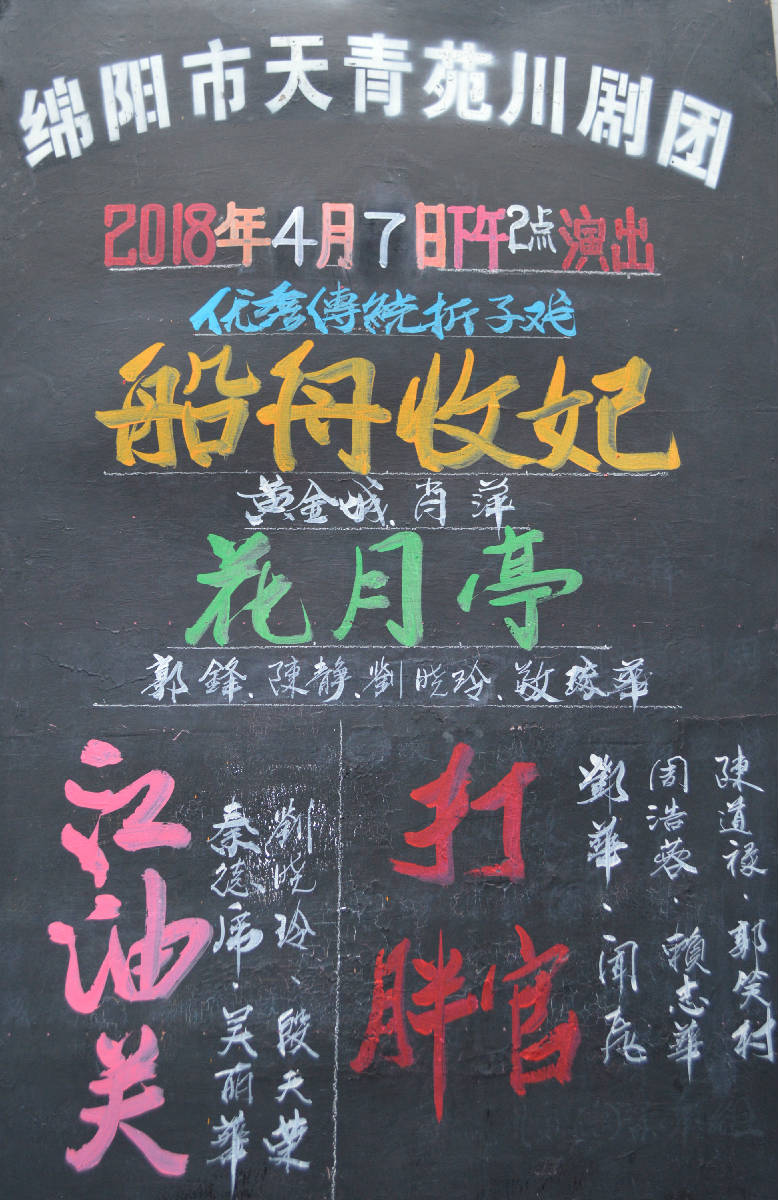 绵阳市天青苑川剧团
2018年4月7日下午2点演出
优秀傳統折子戏
船舟收妃
黄金城、肖萍
花月亭
郭鋒、陳静、劉晓玲、敬琼華
江油关
劉晓玲、段天荣
秦德席、吴丽華
打胖官
陳道禄、郭笑村
周浩蓉、賴志華
鄧華、闻